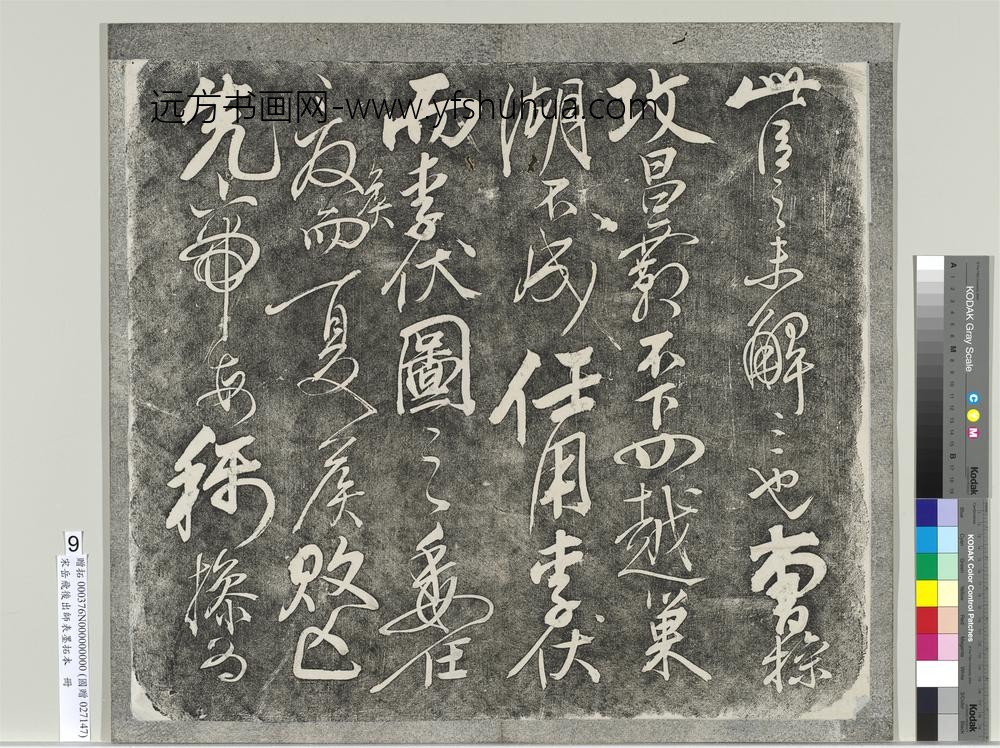 远方书画网-www.yfshuhua.com
此臣之未解三也曹操
攻昌霸不下四越巢
湖不成任用李伏
而李伏圖之委任
夏侯而夏侯敗亡
先帝每稱操為
9
贈拓 000376N000000000 (國贈 027147)
宋岳飛後出師表墨拓本 冊
KODAK Gray Scale
C Y M
Kodak
KODAK Color Control Patches
Kodak